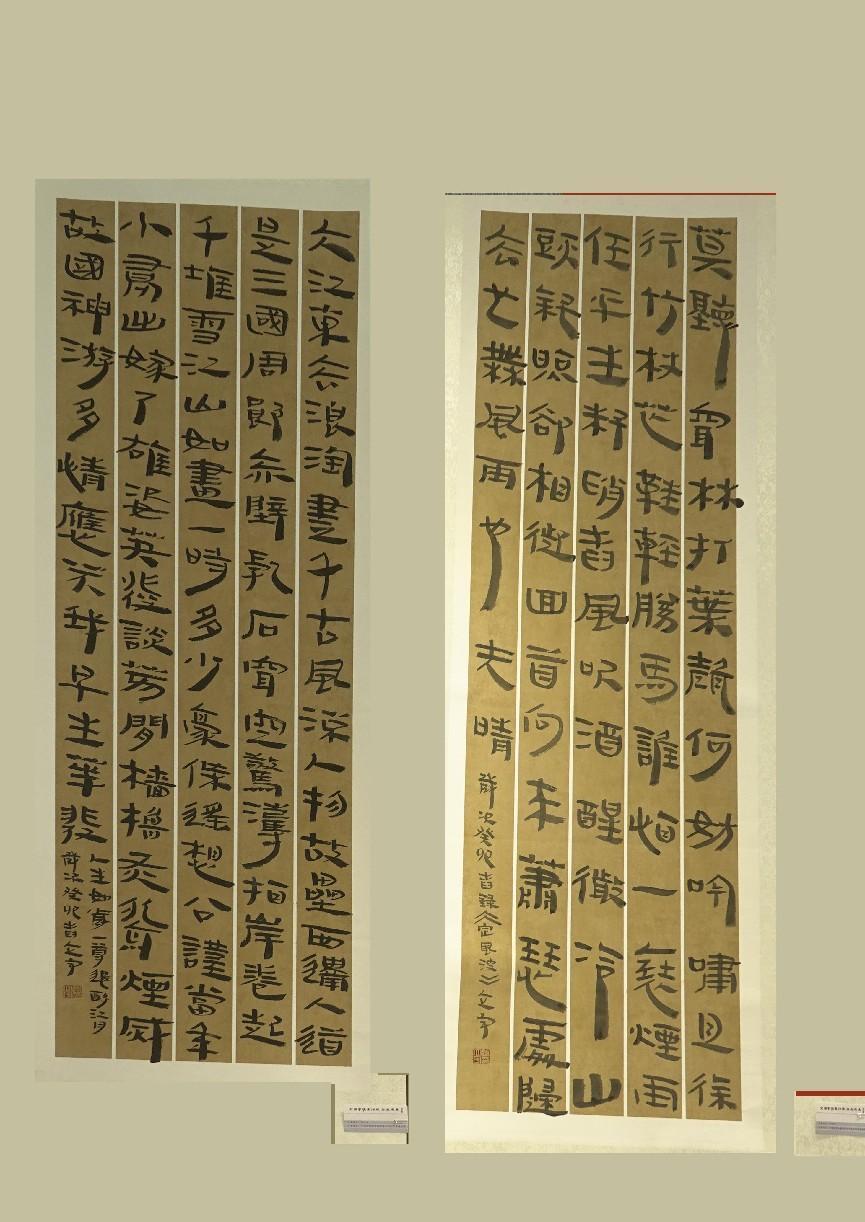 莫聽穿林打葉聲何妨吟嘯且徐
行竹杖芒鞋輕勝馬誰怕一蓑煙雨
任平生料峭春風吹酒醒微冷山
頭斜照卻相迎回首向來蕭瑟處歸
去也無風雨也无晴
蘇詞癸卯春錄《定風波》文宇
大江東去浪淘盡千古風流人物故壘西邊人道
是三國周郎赤壁亂石穿空驚濤拍岸卷起
千堆雪江山如畫一時多少豪傑遙想公謹當年
小喬出嫁了雄姿英發談笑間檣櫓灰飛煙滅
故國神游多情應笑我早生華髮
人生如夢一尊還酹江月
蘇詞癸卯春文宇